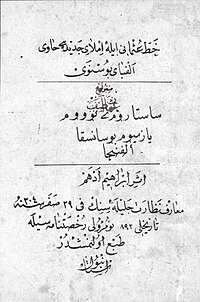 خط عثمانی ایله املای جدیدی حاوی
الفبای بوسنوی
ساستاروم ے نوووم
یازیوم بوسانسقا
الفنیجا
اثر ابراهیم ادهم
معارف نظارت جلیله سنك فی ٢٩ صفر سنه ٣٠٤
تاریخلی ٨٩٢ نومرولی رخصتنامه سیله
طبع اولنمشدر